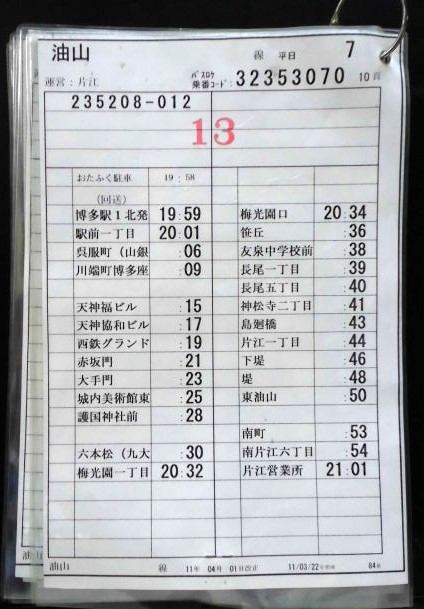 油山 線 平日 7
運営:片江 バスロケ 乗番コード:32353070 10
235208-012
13
おたふく駐車 19:58
(回送)
博多駅1北発 19:59
駅前一丁目 20:01
呉服町(山銀 :06
川端町博多座 :09
天神福ビル :15
天神協和ビル :17
西鉄グランド :19
赤坂門 :21
大手門 :23
城内美術館東 :25
護国神社前 :28
六本松(九大 :30
梅光園一丁目 20:32
梅光園口 20:34
笹丘 :36
友泉中学校前 :38
長尾一丁目 :39
長尾五丁目 :40
神松寺二丁目 :41
島廻橋 :43
片江一丁目 :44
下堤 :46
堤 :48
東油山 :50
南町 :53
南片江六丁目 :54
片江営業所 21:01
油山 線 11年 04月 01日改正 11/03/22 84
油山